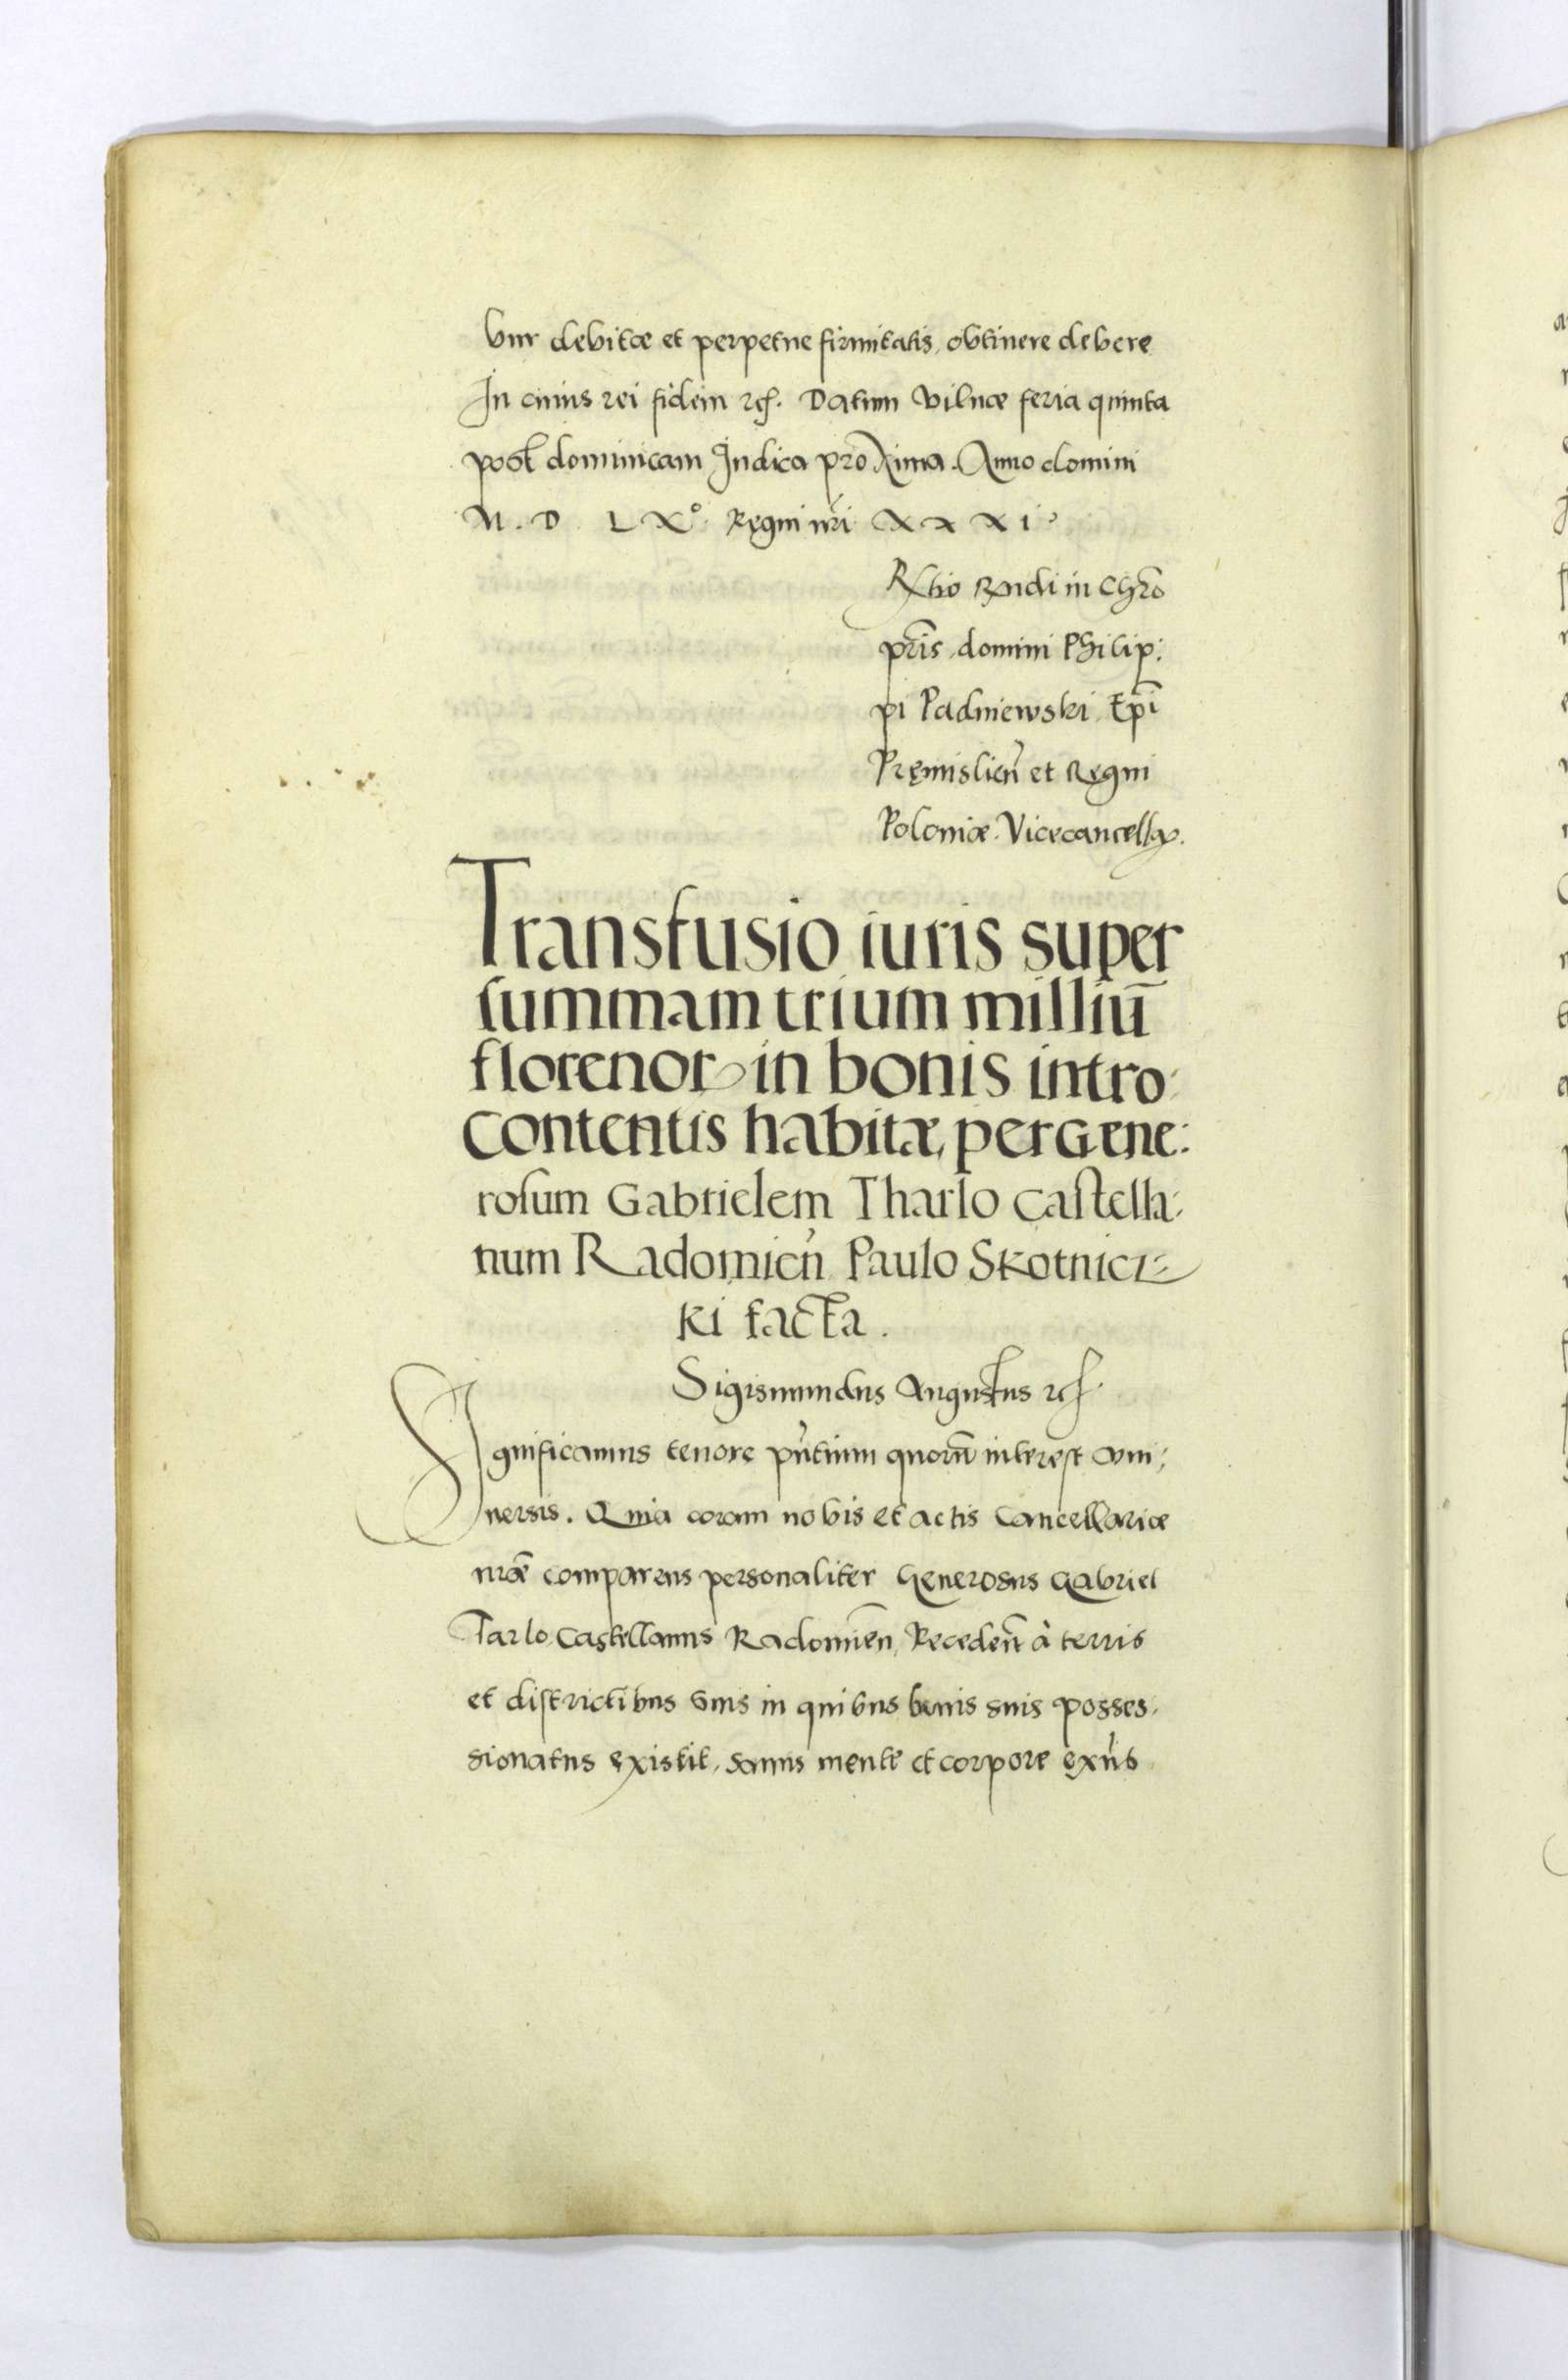 bur debitæ et perpetue firmitatis, obtinere debere
In cuius rei fidem etc. Datum Vilnæ feria quinta
post dominicam Iudica proxima. Anno domini
M. D. L X° Regni nri X X X I°
Rltio Rndi in Chro
pris domini Philip:
pi Padniewski Epi
Pręmislien et Regni
Poloniæ Vicecancellar.
Transfusio iuris super
summam trium milliu̅
florenor in bonis intro:
contentis habitæ, per Gene:
rosum Gabrielem Tharlo Castella:
num Radomien Paulo Skotnicz=
ki facta.
Sigismundus Augustus etc.
Significamus tenore pntium quoru̅ interest vni:
uersis. Quia coram nobis et actis Cancellariæ
nræ comparens personaliter Generosus Gabriel
Tarlo Castellanus Radomien, Receden à terris
et districtibus suis in quibus bonis suis posses:
sionatus existit, sanus mente et corpore exns